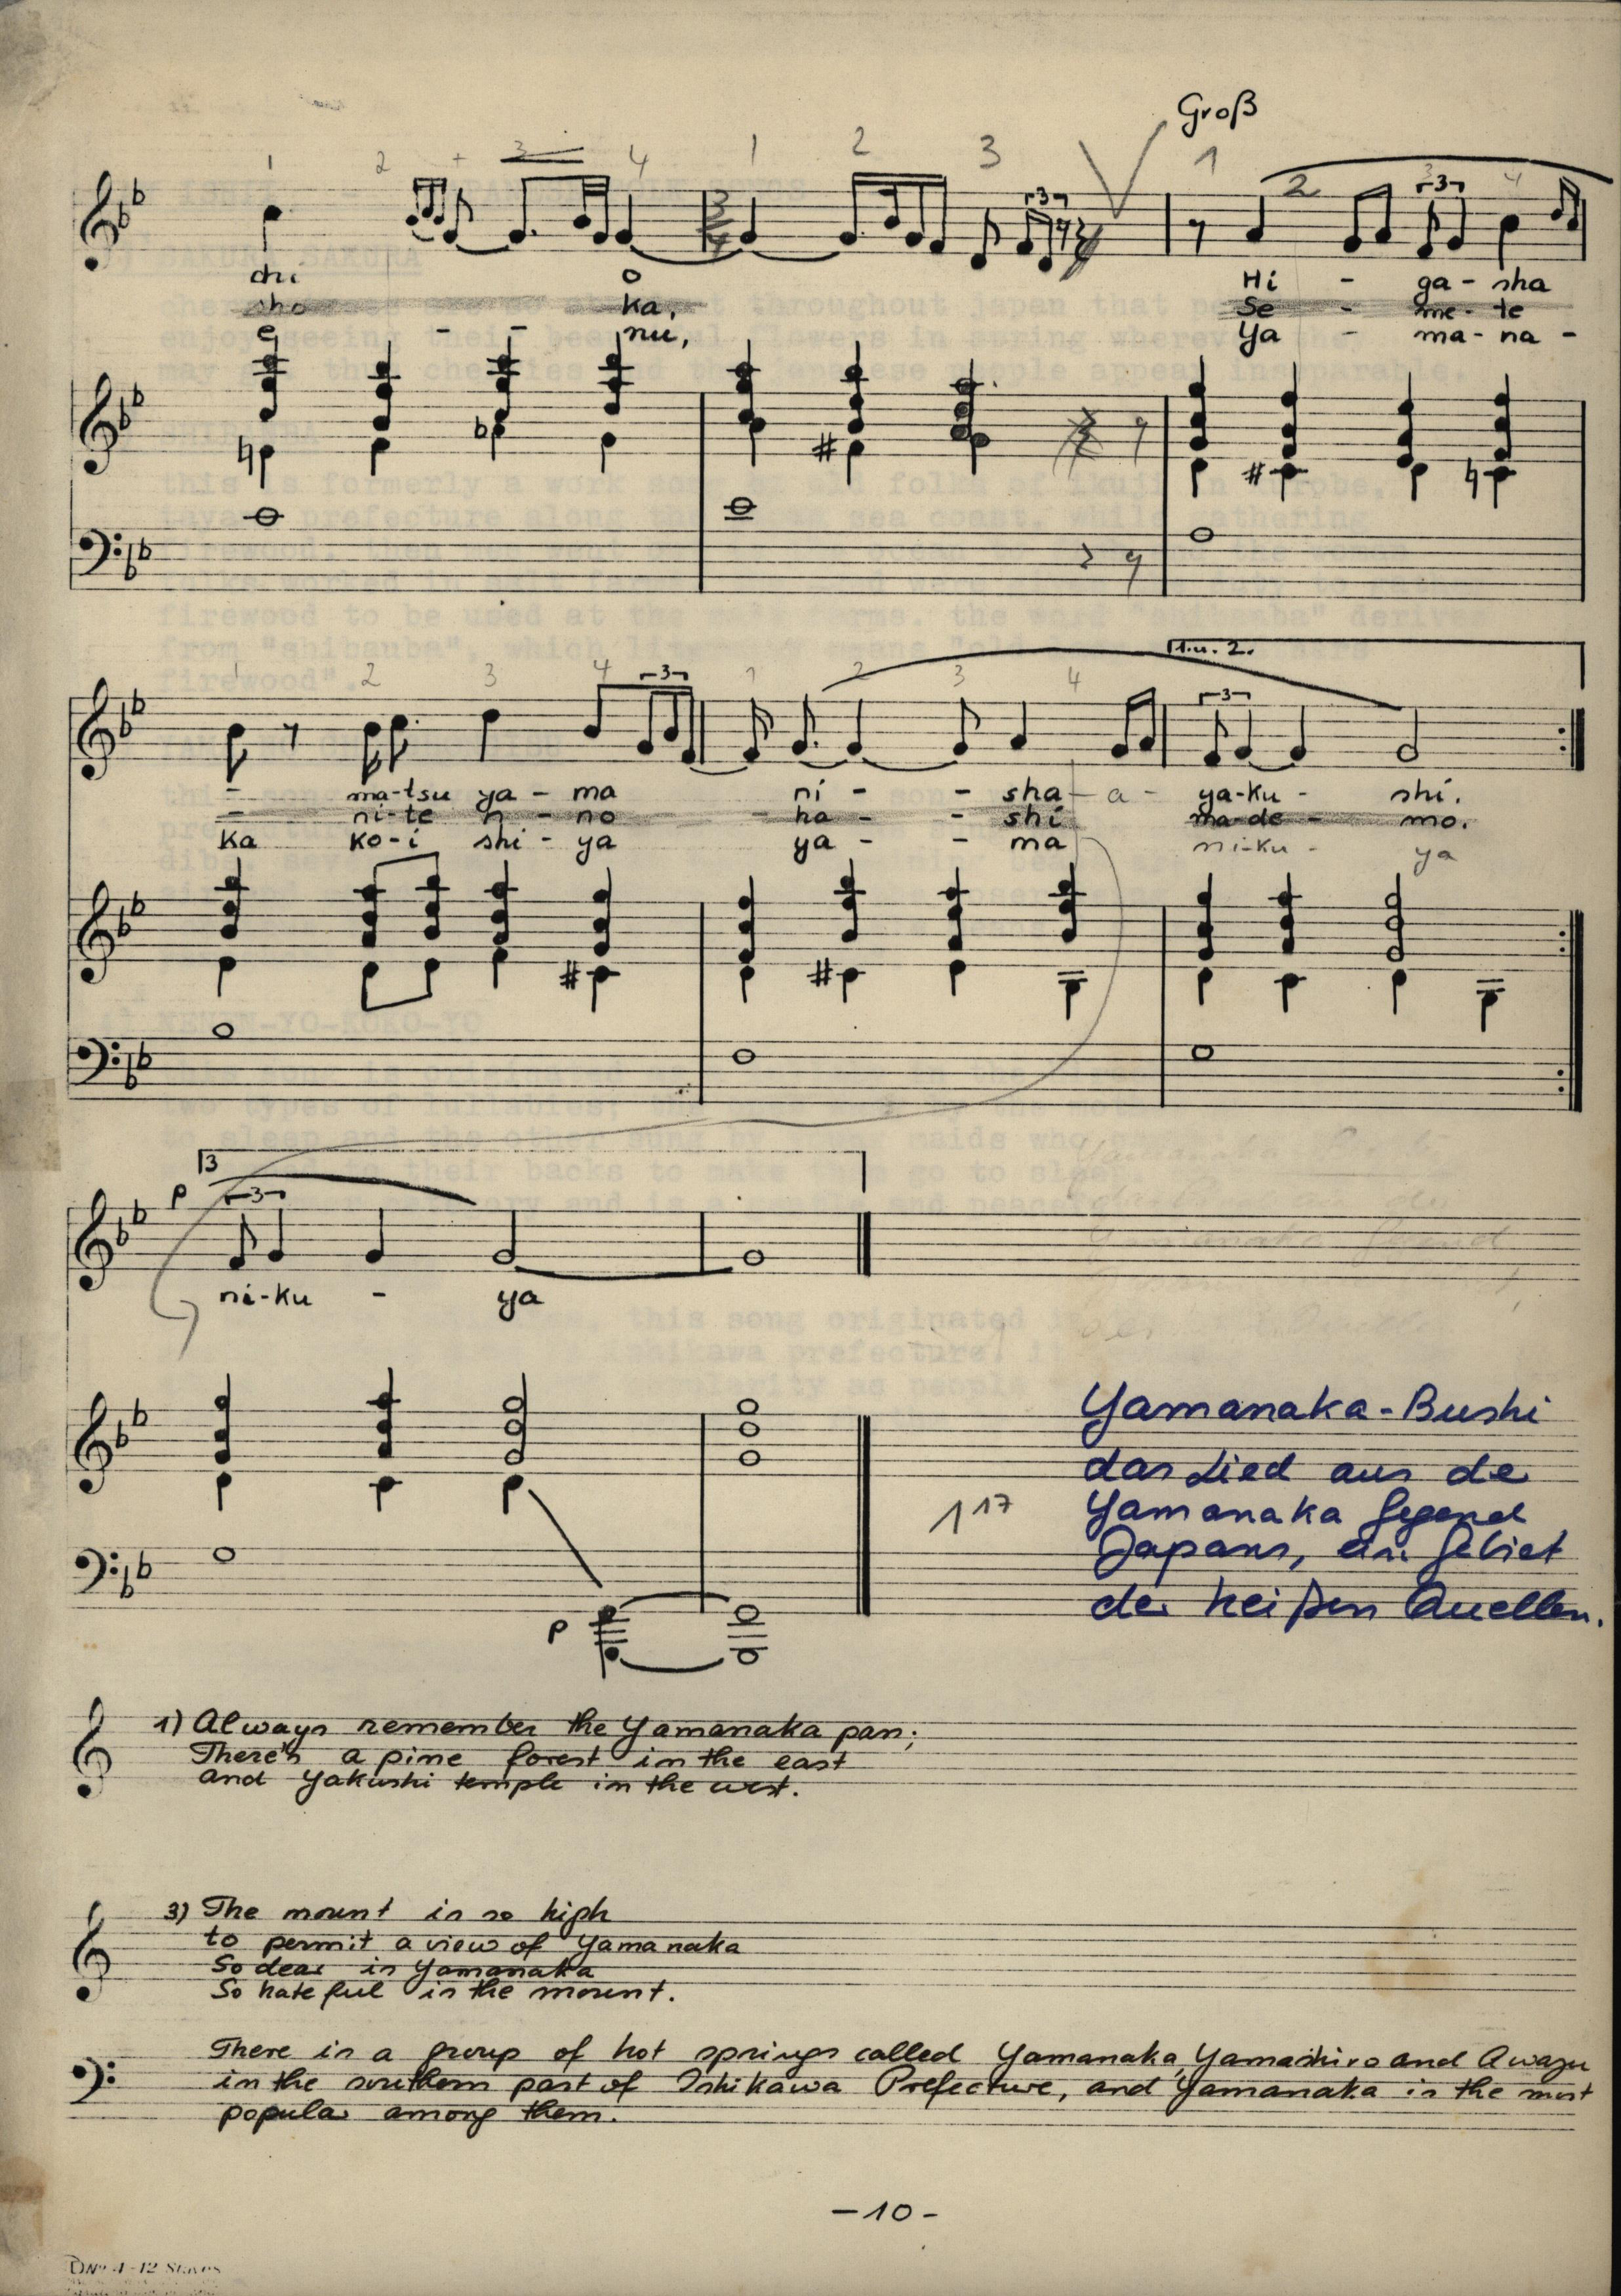 Groß
1 2 + 3 4 1 2 3 1 2 3 4
3
3
chi o Hi - ga - sha
sho ka, Se - me - te
e - - nu, Ya - ma - na -
1.u. 2.
1 2 3 4 1 2 3 4
3
3
- ma-tsu ya - ma ni - - sha - a - ya-ku - shi.
- ni-te n - no ha - - shi ma-de - mo.
ka ko-i shi - ya ya - - ma ni-ku - ya
3
p 3
ni-ku - ya
Yamanaka-Bushi
das Lied aus de
Yamanaka Gegend
1 17
Japans, ein Gebiet
der heißen Quellen.
p
1) Always remember the Yamanaka pan;
There's a pine forest in the east
and Yakushi temple in the west.
3) The mount is so high
to permit a view of Yamanaka
So dear is Yamanaka
So hateful is the mount.
There is a group of hot springs called Yamanaka, Yamashiro and Awazu
in the southern part of Ishikawa Prefecture, and Yamanaka is the most
popular among them.
- 10 -
No 4-12 Staves